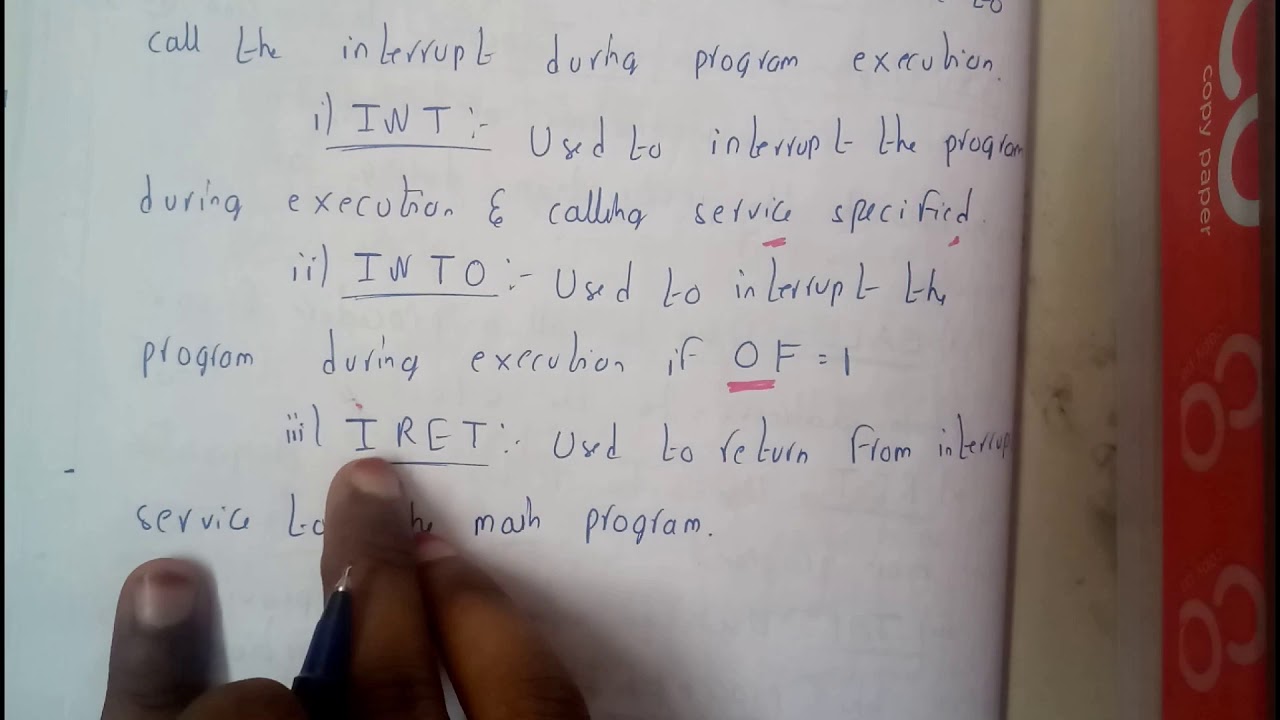 to
call the interrupt during program execution.
i) INT :- Used to interrupt the program
during execution & calling service specified.
ii) INTO :- Used to interrupt the
program during execution if OF = 1
iii) IRET :- Used to return from interrup
service to the main program.
copy paper
CO
CO